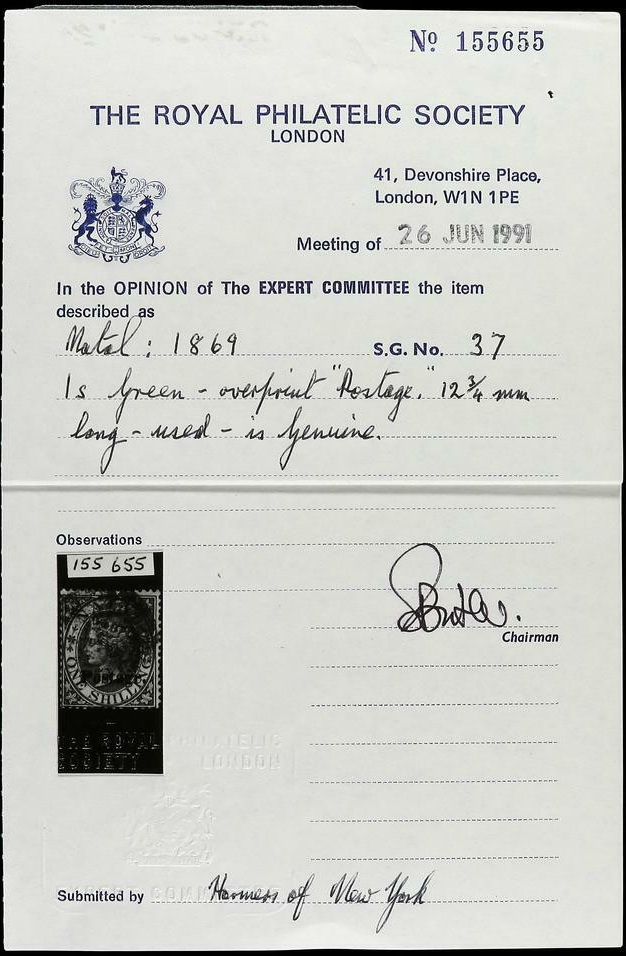 Nº 155655
THE ROYAL PHILATELIC SOCIETY
LONDON
41, Devonshire Place,
London, W1N 1PE
Meeting of 26 JUN 1991
In the OPINION of The EXPERT COMMITTEE the item
described as
Natal: 1869 S.G. No. 37
1s Green - overprint "Postage." 12 3/4 mm
long - used - is Genuine.
Observations
155 655
Chairman
ONE SHILLING
Postage
THE ROYAL PHILATELIC
SOCIETY LONDON
Submitted by Harmers of New York